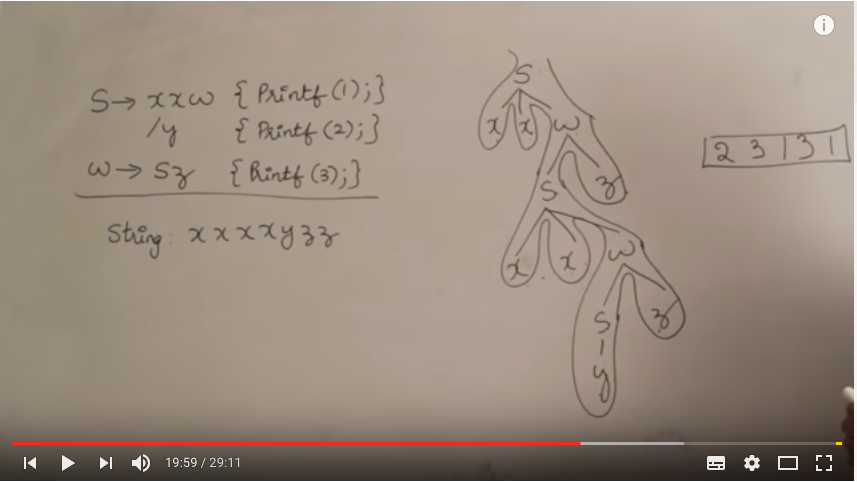 S → x x w { Printf (1); }
/y { Printf (2); }
w → S z { Printf (3); }
String: x x x x y z z
S
x x w
S z
x x w
S z
y
2 3 1 3 1
19:59 / 29:11